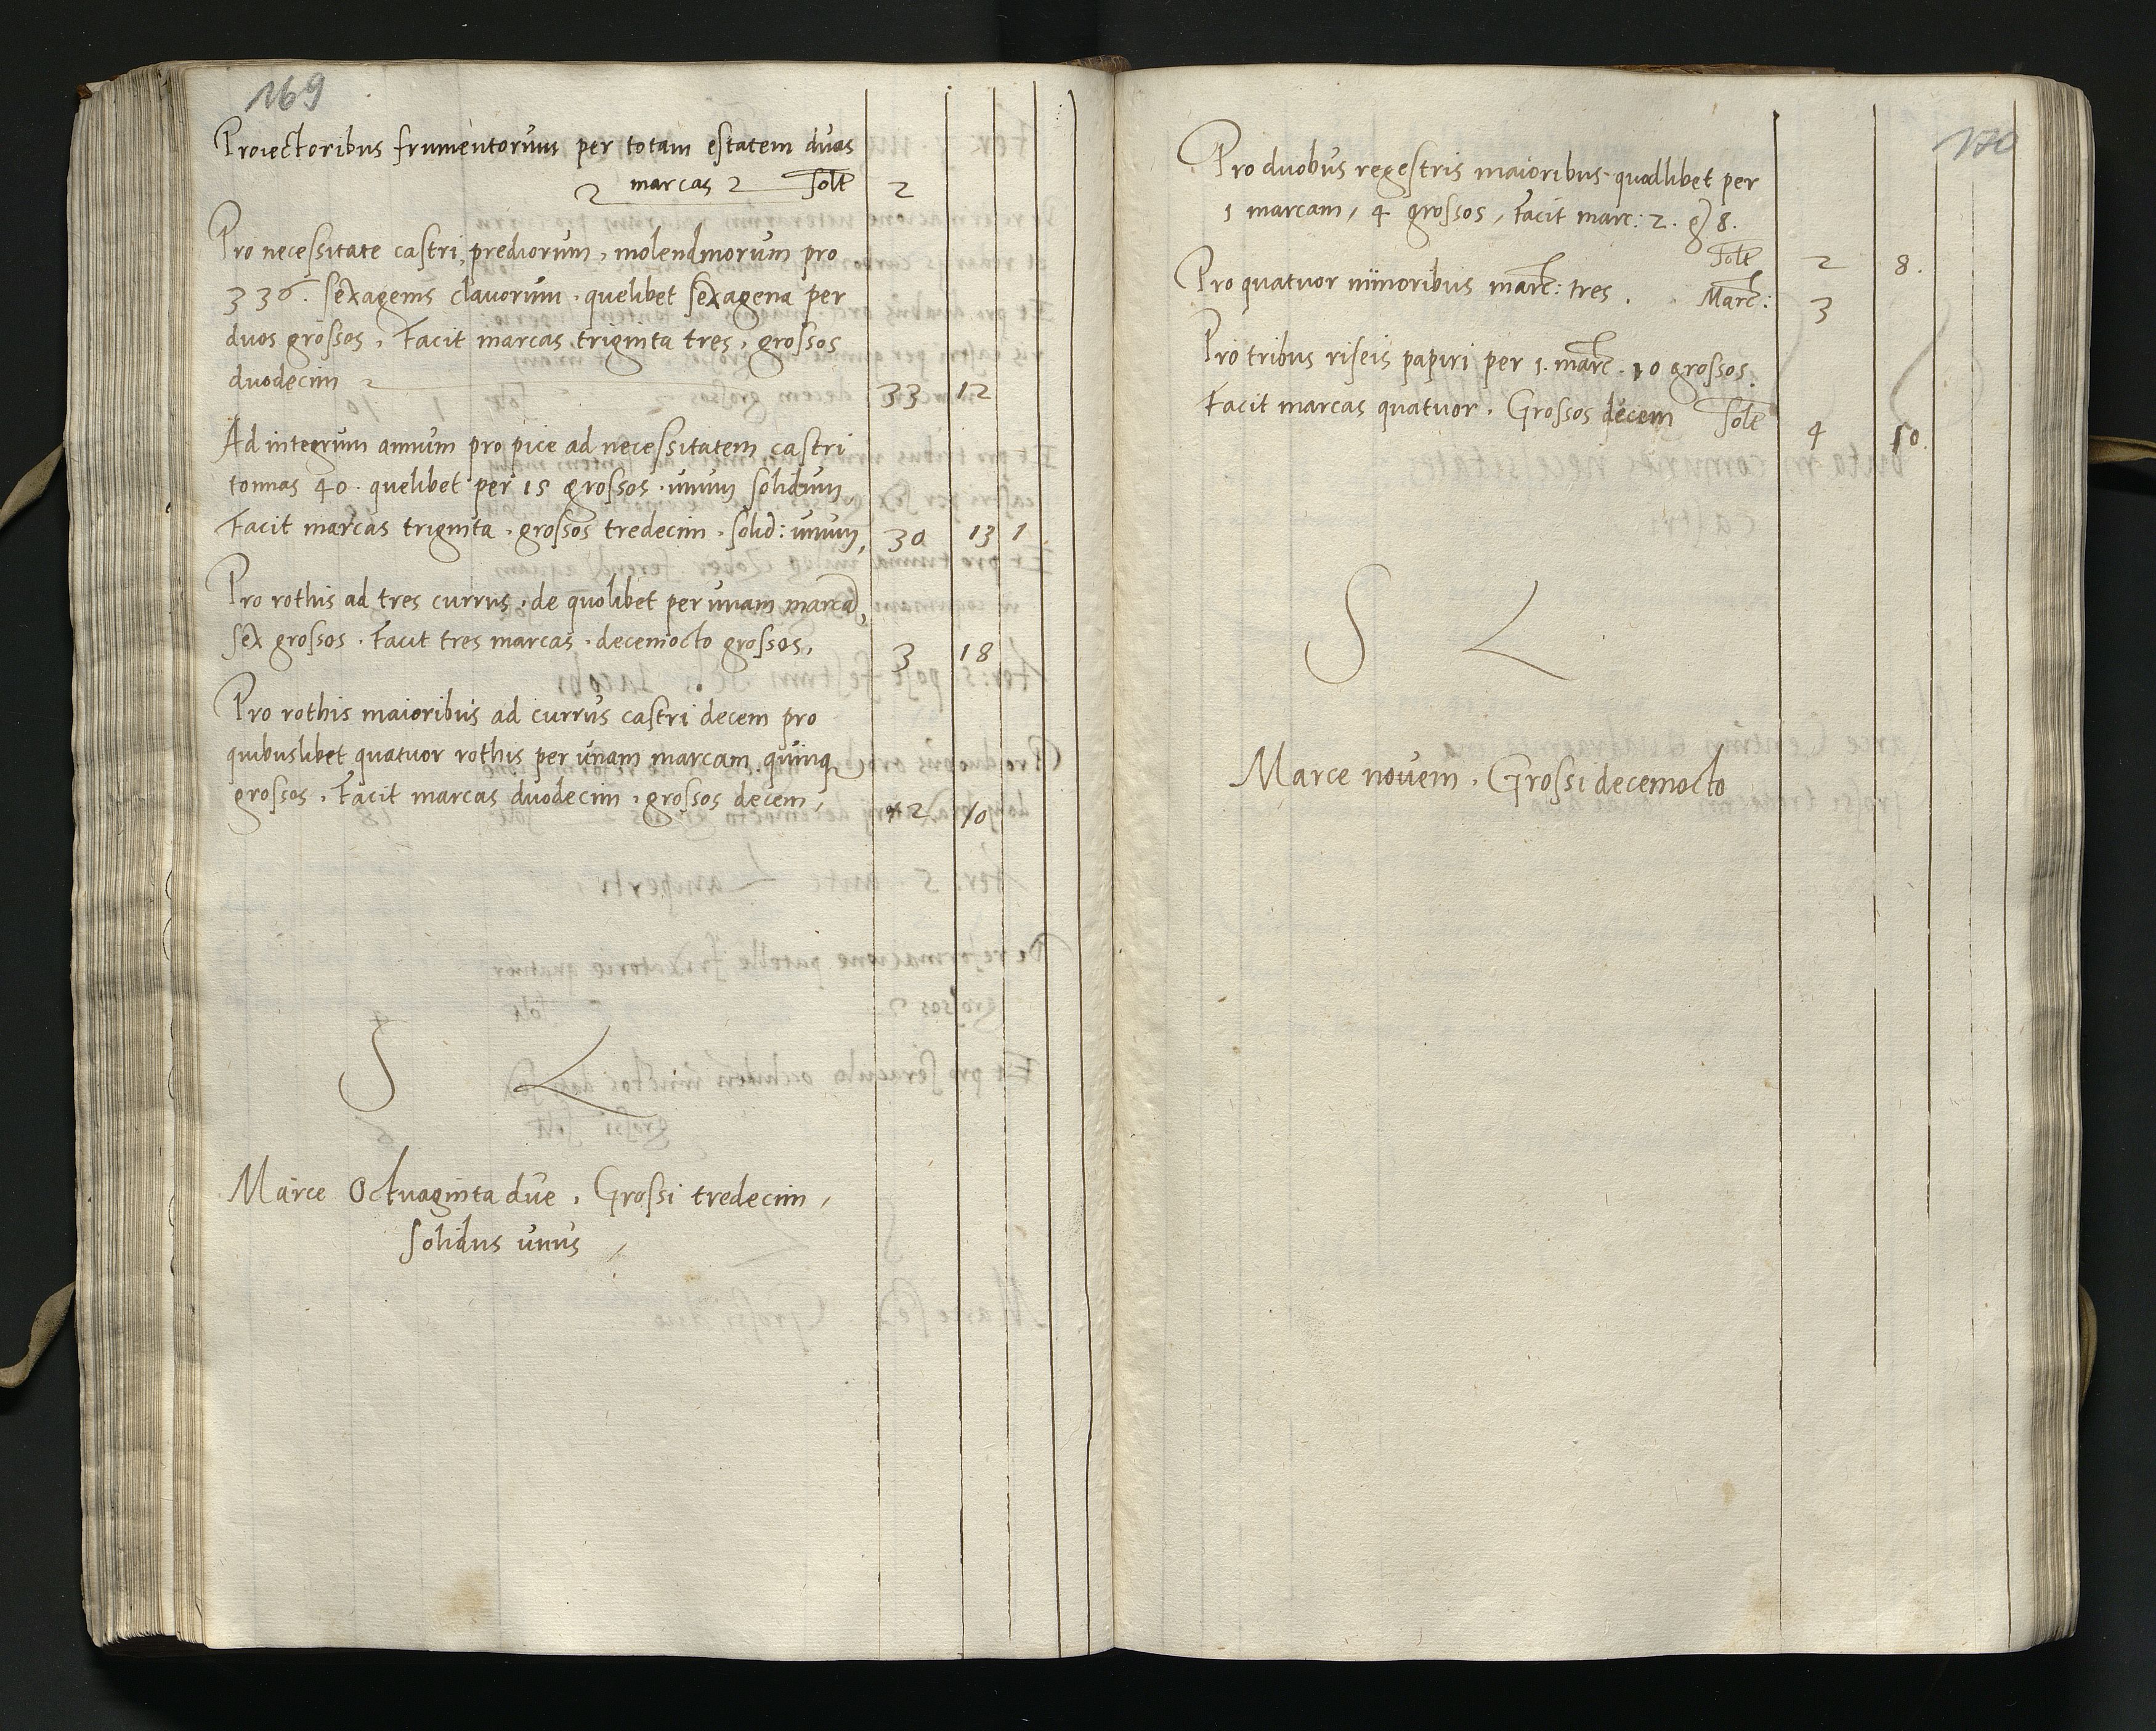 169
Proiectoribus frumentorum per totam estatem duas
marcas solt 2
Pro necessitate castri, prediorum, molendinorum pro
336. sexagenis clavorum. quelibet sexagena per
duos grossos, Facit marcas triginta tres, grossos
duodecim 33 12
Ad integrum annum pro pice ad necessitatem castri
tonnas 40. quelibet per 15 grossos. unum solidum
Facit marcas triginta. grossos tredecim. solid: unum, 30 13 1
Pro rothis ad tres currus. de quolibet per unam marca,
sex grossos. Facit tres marcas. decemocto grossos, 3 18
Pro rothis maioribus ad currus castri decem pro
quibuslibet quatuor rothis per unam marcam. quinq
grossos. Facit marcas duodecim. grossos decem, 12 10
S L
Marce Octuaginta due, Grossi tredecim,
solidus unus
170
Pro duobus regestris maioribus. quodlibet per
1 marcam, 4 grossos, Facit marc: 2. g 8.
solt 2 8.
Pro quatuor minoribus marc: tres. Marc: 3
Pro tribus riseis papiri per 1. marc. 10 grossos.
Facit marcas quatuor. Grossos decem solt 4 10.
S L
Marce novem. Grossi decemocto